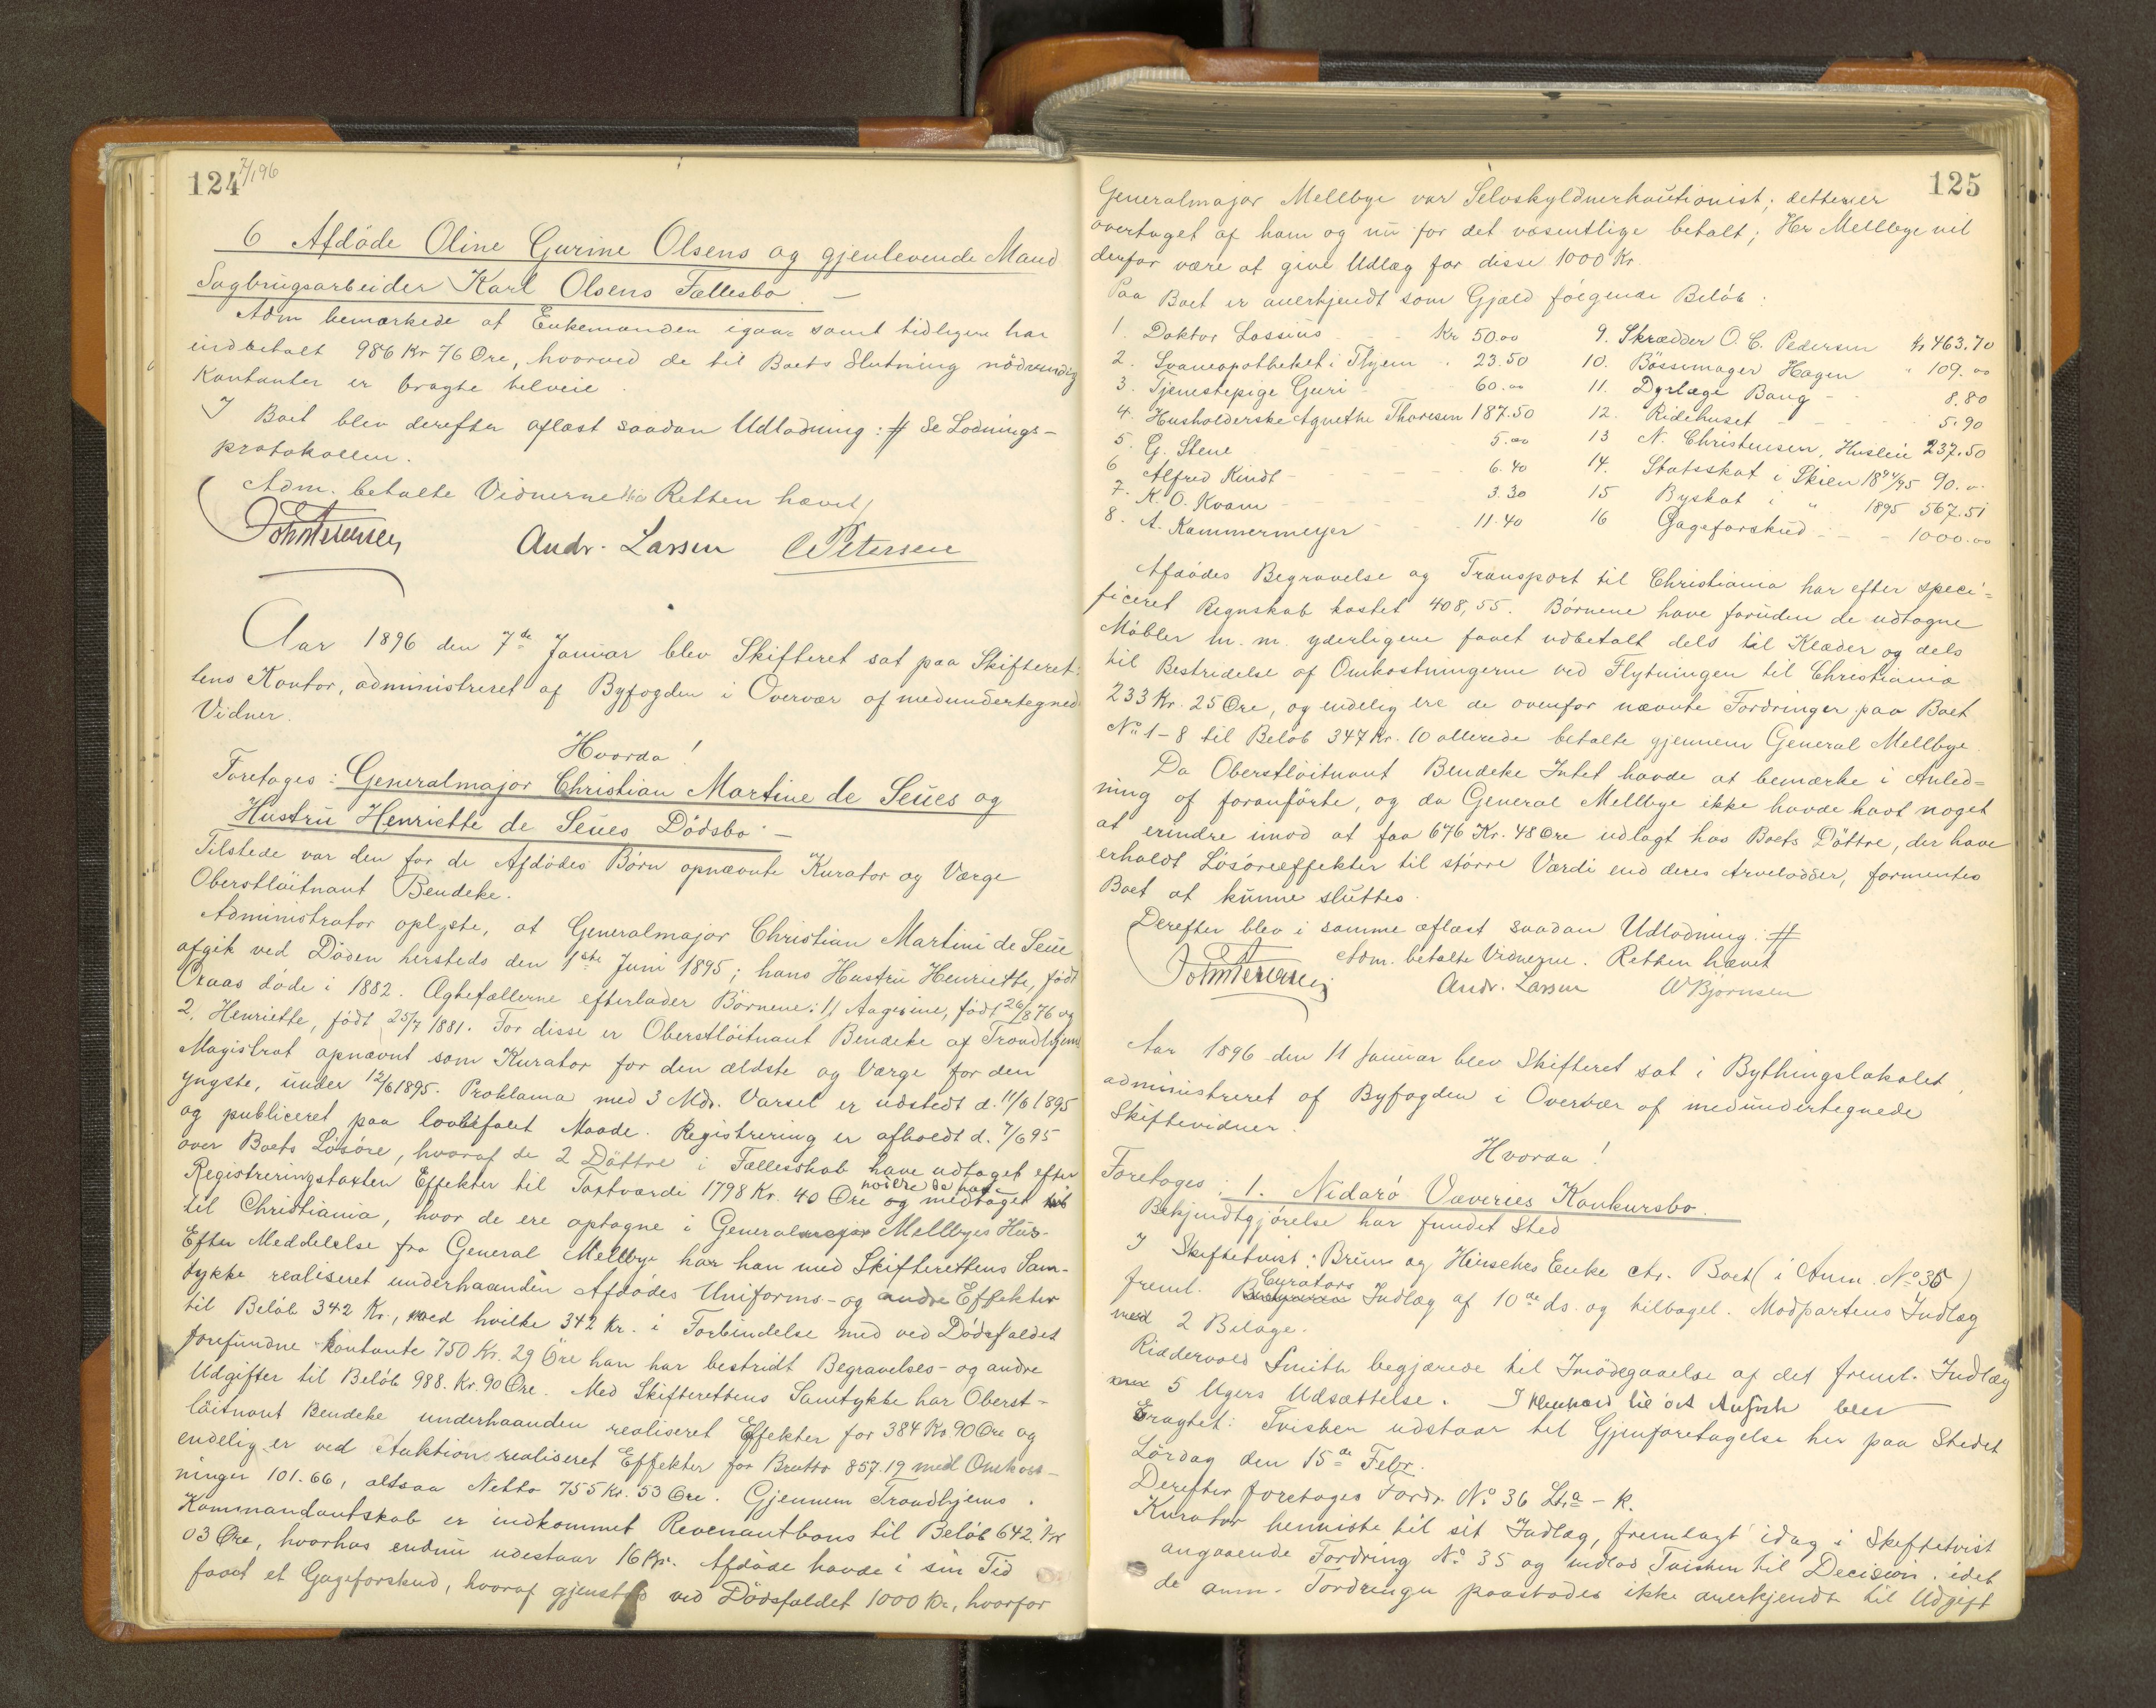 124 7/1 96
6 Afdöde Oline Gurine Olsens og gjenlevende Mand
Sagbrugsarbeider Karl Olsens Fællesbo. —
Adm bemærkede at Enkemanden igaar samt tidligere har
indbetalt 986 Kr 76 Öre, hvorved de til Boets Slutning nödvendig
Kontanter er bragte tilveie.
I Boet blev derefter aflæst saadan Udlodning: # Se Lodnings-
protokollen.
Adm. betalte Vidnerne Retten hævet
Andr. Larsen CPetersen
Aar 1896 den 7de Januar blev Skifteret sat paa Skifteret-
tens Kontor, administreret af Byfogden i Overvær af medundertegned
Vidner.
Hvorda!
Foretages: Generalmajor Christian Martine de Seues og
Hustru Henriette de Seues Dödsbo —
Tilstede var den for de Afdödes Börn opnævnte Kurator og Værge
Oberstlöitnant Bendeke.
Administrator oplyste, at Generalmajor Christian Martini de Seue
afgik ved Döden hersteds den 1ste Juni 1895; hans Hustru Henriette, född
Aaas döde i 1882. Ægtefællerne efterlader Börnene: 1/ Aagesine, född 26/8 76 og
2. Henriette, född 25/7 1881. For disse er Oberstlöitnant Bendeke af Trondhjems
Magistrat opnævnt som Kurator for den ældste og Værge for den
yngste, under 12/6 1895. Proklama med 3 Mdr. Varsel er udstedt d. 11/6 1895
og publiceret paa lovbefalet Maade. Registrering er afholdt d. 7/6 95
over Boets Lösöre, hvoraf de 2 Döttre i Fællesskab have udtaget efter
Registreringstaxten Effekter til Taxtværdi 1798 Kr. 40 Öre hvilke de har medtaget
til Christiania, hvor de ere optagne i General Mellbyes Hus-
Efter Meddelelse fra General Mellbye har han med Skifterettens Sam-
tykke realiseret underhaanden Afdödes Uniforms- og andre Effekter
til Belöb 342 Kr., med hvilke 342 Kr. i Forbindelse med ved Dödsfaldet
forefundne Kontante 750 Kr. 29 Öre han har bestridt Begravelses- og andre
Udgifter til Belöb 988. Kr. 90 Öre. Med Skifterettens Samtykke har Oberst-
löitnant Bendeke underhaanden realiseret Effekter for 384 Kr 90 Öre og
endelig er ved Auktion realiseret Effekter for Brutto 857.19 med Omkost-
ninger 101.66, altsaa Netto 755 Kr. 53 Öre. Gjennem Trondhjems
Kommandantskab er indkommet Revenantbons til Belöb 642 Kr
03 Öre, hvorhos endnu udestaar 16 Kr. Afdöde havde i sin Tid
faaet et Gageforskud, hvoraf gjenstod ved Dödsfaldet 1000 Kr, hvorfor
125
Generalmajor Mellbye var Selvskyldnerkautionist; dette er
overtaget af ham og nu for det væsentlige betalt; Hr Mellbye vil
derfor være at give Udlæg for disse 1000 Kr.
Paa Boet er anerkjendt som Gjæld fölgende Belöb:
1. Doktor Lossius Kr 50.00 9. Skrædder O. C. Pedersen Kr 463.70
2. Svaneapotheket i Thjem 23.50 10. Bössemager Hagen " 109.00
3. Tjenestepige Guri 60.00 11. Dyrlæge Bang 8.80
4. Husholderske Agnethe Thoresen 187.50 12. Ridehuset 5.90
5. G. Stene 5.00 13 N. Christensen, Husleie 237.50
6 Alfred Kindt 6.40 14. Statsskat i Skien 1894/95 90.00
7. K. O. Kvam 3.30 15 Byskat i " 1895 567.51
8. A. Kammermeyer 11.40 16 Gageforskud 1000.00
Afdödes Begravelse og Transport til Christiania har efter speci-
ficeret Regnskab kostet 408,55. Börnene have foruden de udtagne
Möbler m. m. yderligere faaet udbetalt dels til Klæder og dels
til Bestridelse af Omkostningerne ved Flytningen til Christiania
233 Kr. 25 Öre, og endelig ere de ovenfor nævnte Fordringer paa Boet
No 1-8 til Belöb 347 Kr. 10 allerede betalte gjennem General Mellbye.
Da Oberstlöitnant Bendeke Intet havde at bemærke i Anled-
ning af foranförte, og da General Mellbye ikke havde havt noget
at erindre imod at faa 676 Kr. 48 Öre udlagt hos Boets Döttre, der have
erholdt Lösöreeffekter til större Værdi end deres Arvelodder, formentes
Boet at kunne sluttes.
Derefter blev i samme aflæst saadan Udlodning: #
Adm. betalte Vidnerne. Retten hævet
Andr. Larsen W Bjornsen
Aar 1896 den 11 Januar blev Skifteret sat i Bythingslokalet,
administreret af Byfogden i Overvær af medundertegnede
Skiftevidner.
Hvorda!
Foretages: 1. Nidarö Væveries Konkursbo.
Bekjendtgjörelse har fundet Sted
I Skiftetvist: Bruun og Hinsches Enke ctr. Boet (i Anm. No 35)
freml. Curators Indlæg af 10de ds. og tilbagel. Modpartens Indlæg
med 2 Bilage.
Riddervold Smith begjærede til Imödegaaelse af det freml. Indlæg
5 Ugers Udsættelse. I Henhold til blev
Eragtet: Tvisten udstaar til Gjenforetagelse her paa Stedet
Lördag den 15de Febr.
Derefter foretages Fordr. No 36 Ltra - k.
Kurator henviste til sit Indlæg, fremlagt idag i Skiftetvist
angaaende Fordring No 35 og indlod Tvisten til Decision, idet
de anm. Fordringer paastodes ikke anerkjendt til Udgift